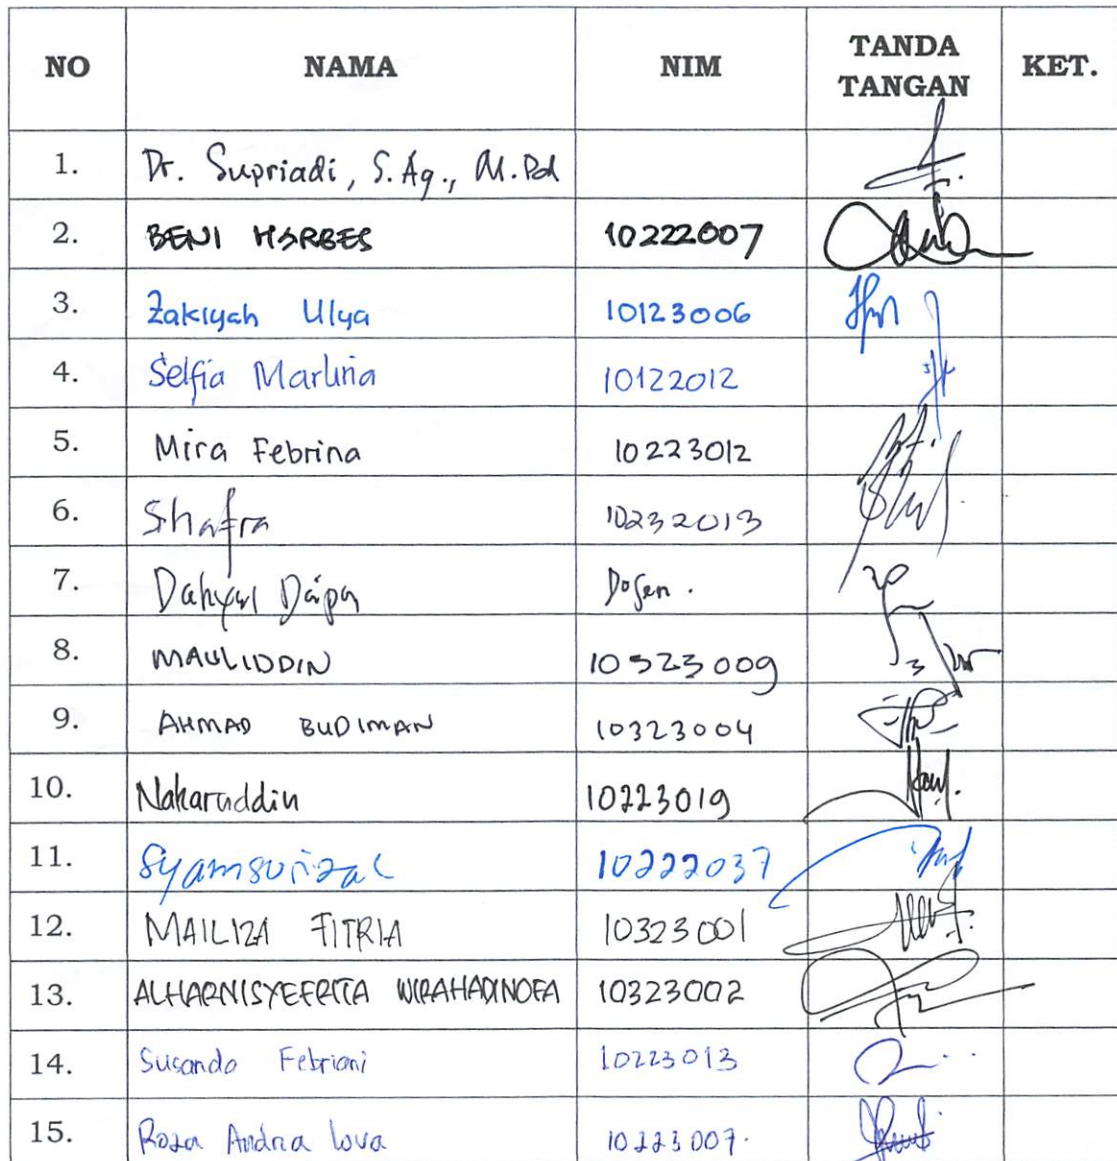 NO NAMA NIM TANDA TANGAN KET.
1. Dr. Supriadi, S.Ag., M.Pd
2. BENI HARBES 10222007
3. Zakiyah Ulya 10123006
4. Selfia Marlina 10122012
5. Mira Febrina 10223012
6. Shafra 10232013
7. Dosen.
8. MAULIDDIN 10323009
9. AHMAD BUDIMAN 10323004
10. Naharuddin 10223019
11. Syamsurizal 10222037
12. MAILIZA FITRIA 10323001
13. ALHARNISYEFRITA WIRAHADINOFA 10323002
14. Susando Febriani 10223013
15. Roza Andria Lova 10223007.